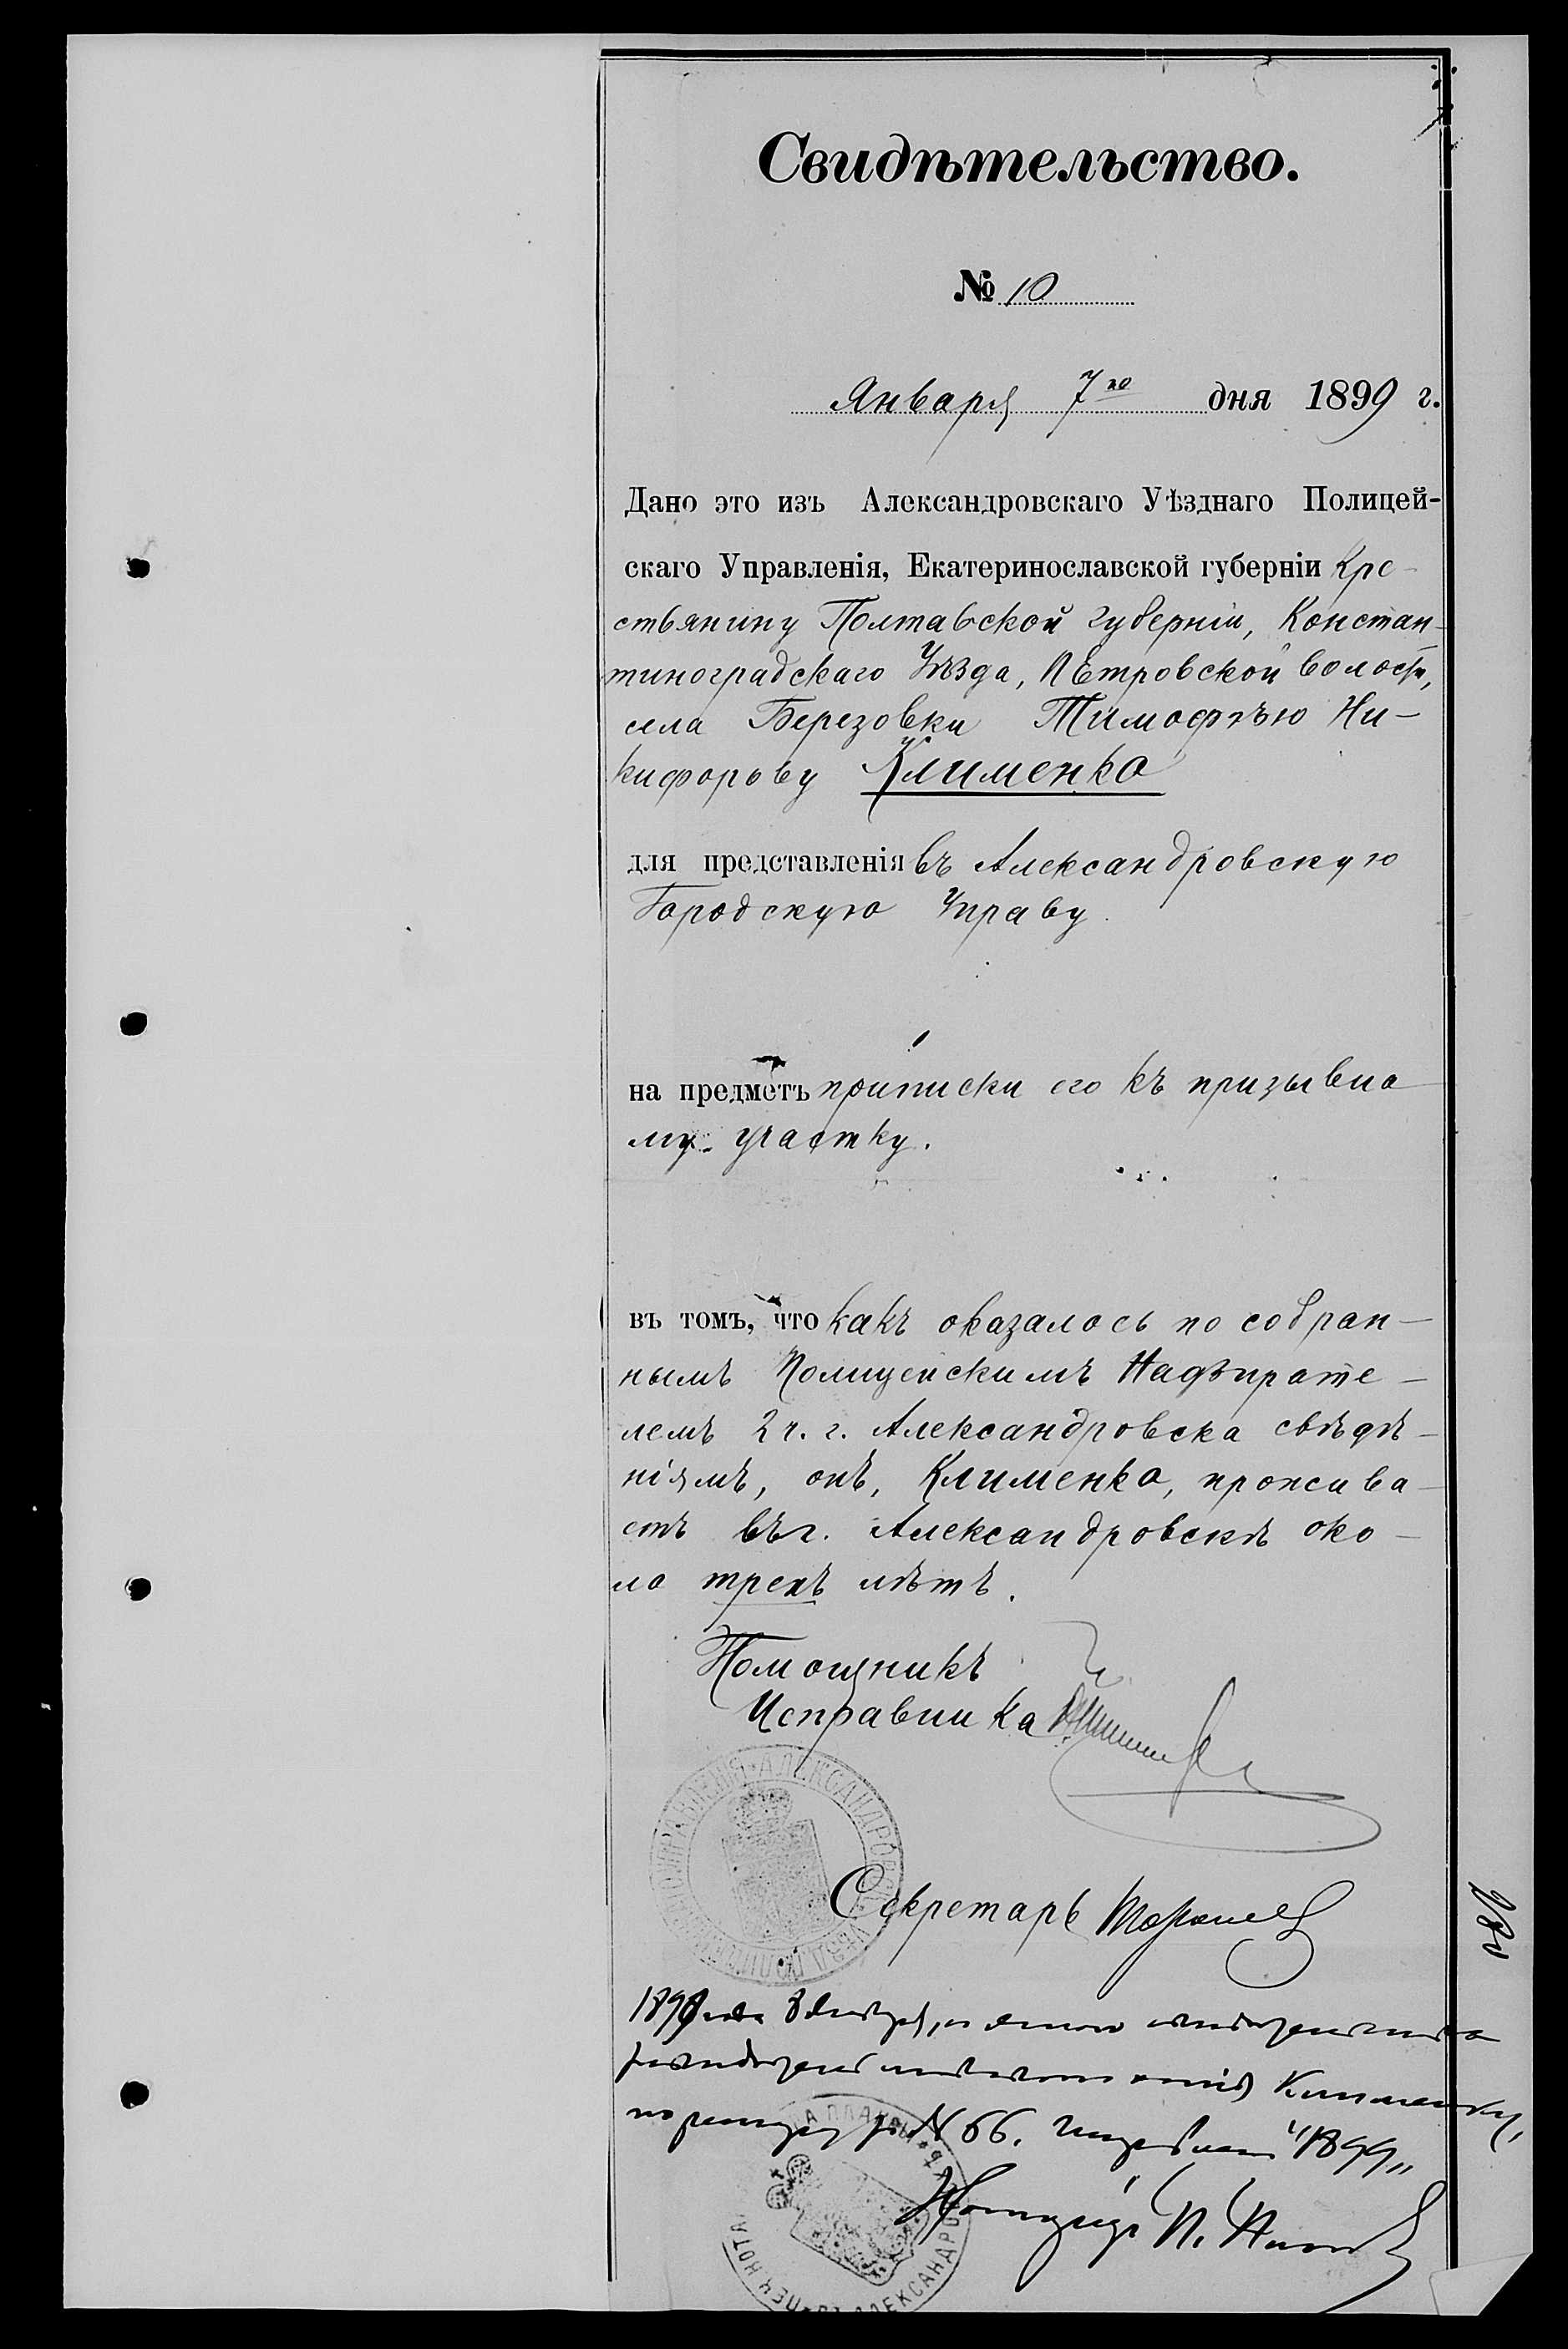 Свидѣтельство.
№ 10
Января 7го дня 1899 г.
Дано это изъ Александровскаго Уѣзднаго Полицей-
скаго Управленія, Екатеринославской губерніи Кре-
стьянину Полтавской губерніи, Констан-
тиноградскаго Уѣзда, Петровской волости,
села Березовки Тимофѣю Ни-
кифорову Клименко
для представленія въ Александровскую
Городскую Управу.
на предметъ приписки его къ призывно
му участку.
въ томъ, что какъ оказалось по собран-
нымъ Полицейскимъ Надзирате-
лемъ 2 ч. г. Александровска свѣдѣ-
ніямъ, онъ, Клименко, прожива-
етъ въ г. Александровскѣ око-
ло трехъ лѣтъ.
Помощникъ
Исправника
Секретарь
1899 года Января,
Клименку,
по реестру № 66. 1899
Нотаріусъ П.